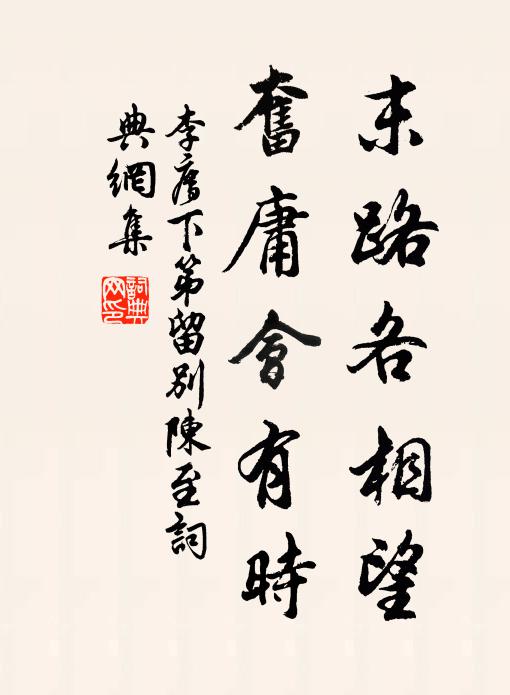 末路各相望
奮庸會有時
李廌下第留別陳至詞
典網集
詞典
网印